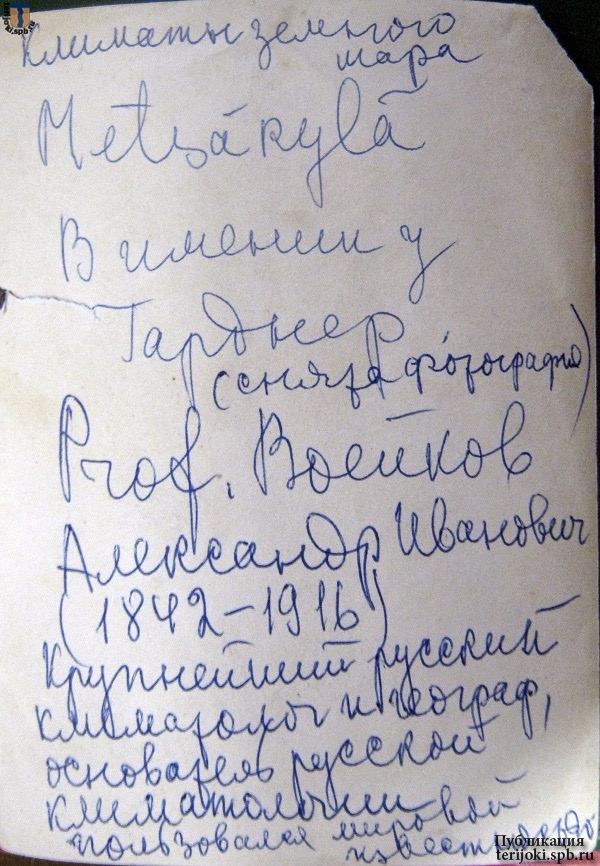 terijoki.spb.ru
Климаты земного
шара
Metsäkylä
В имении у
Гарднер
(снята фотография)
Prof. Воейков
Александр Иванович
(1842-1916)
Крупнейший русский
климатолог и географ,
основатель русской
климатологии
пользовался мировой
известностью
Публикация
terijoki.spb.ru